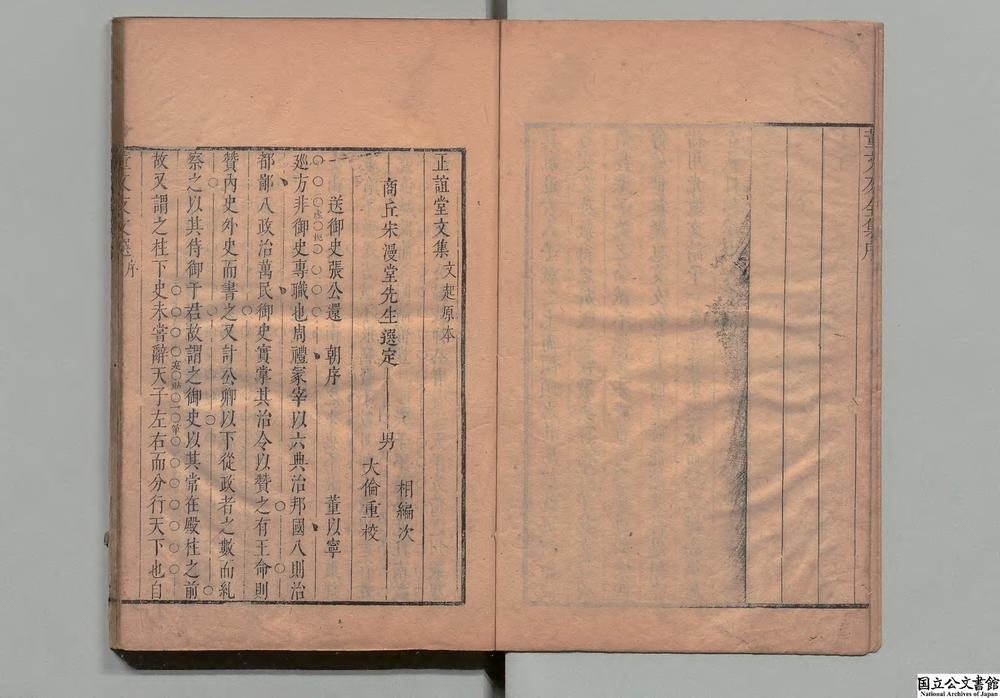 董文友全集序
正誼堂文集 文起原本
商丘宋漫堂先生選定 男
相編次
大倫重校
送御史張公還 朝序 董以寧
廵方非御史專職也周禮冢宰以六典治邦國八則治
都鄙八政治萬民御史實掌其治令以贊之有王命則
贊內史外史而書之又計公卿以下從政者之數而糾
察之以其侍御于君故謂之御史以其常在殿柱之前
故又謂之柱下史未嘗辭天子左右而分行天下也自
董文友文選 序
国立公文書館
National Archives of Japan